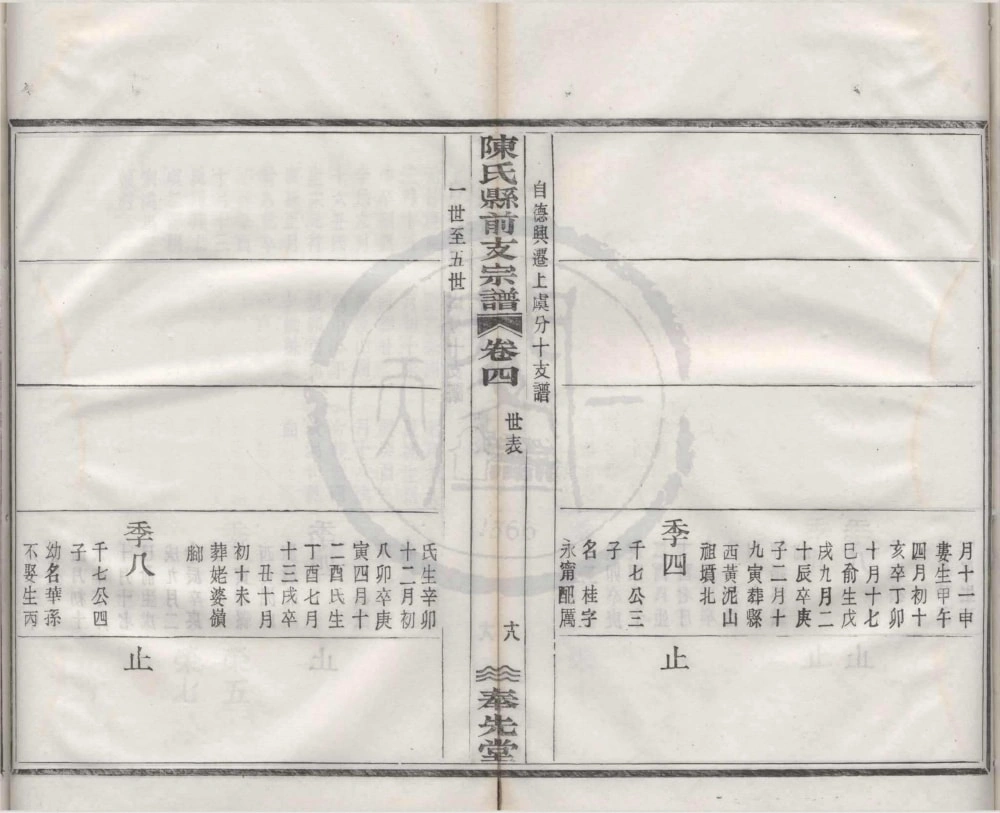 月十一申
婁生甲午
四月初十
亥卒丁卯
十月十七
巳俞生戊
戌九月二
十辰卒庚
子二月十
九寅葬縣
西黃泥山
祖墳北
季四
止
千七公三
子
名 桂字
永甯配厲
自德興遷上虞分十支譜
陳氏縣前支宗譜 卷四
世表
十八
奉先堂
一世至五世
氏生辛卯
十二月初
八卯卒庚
寅四月十
二酉氏生
丁酉七月
十三戌卒
己丑十月
初十未
葬姥婆嶺
腳
季八
止
千七公四
子
幼名華孫
不娶生丙